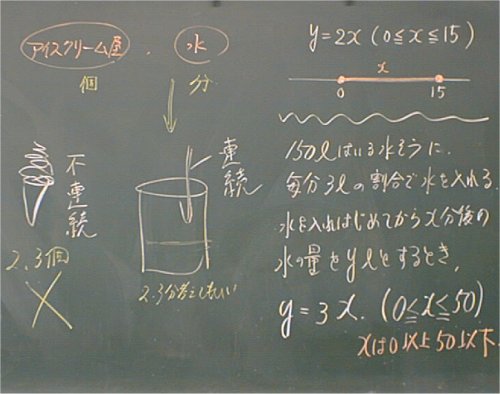 アイスクリーム屋 . 水
個 分
不連続
連続
2.3個
2.3分考えてもいい
y=2x (0≦x≦15)
x
0 15
150ℓはいる水そうに、
毎分3ℓの割合で水を入れる
水を入れはじめてからx分後の
水の量をyℓとするとき、
y=3x. (0≦x≦50)
xは0以上50以下.